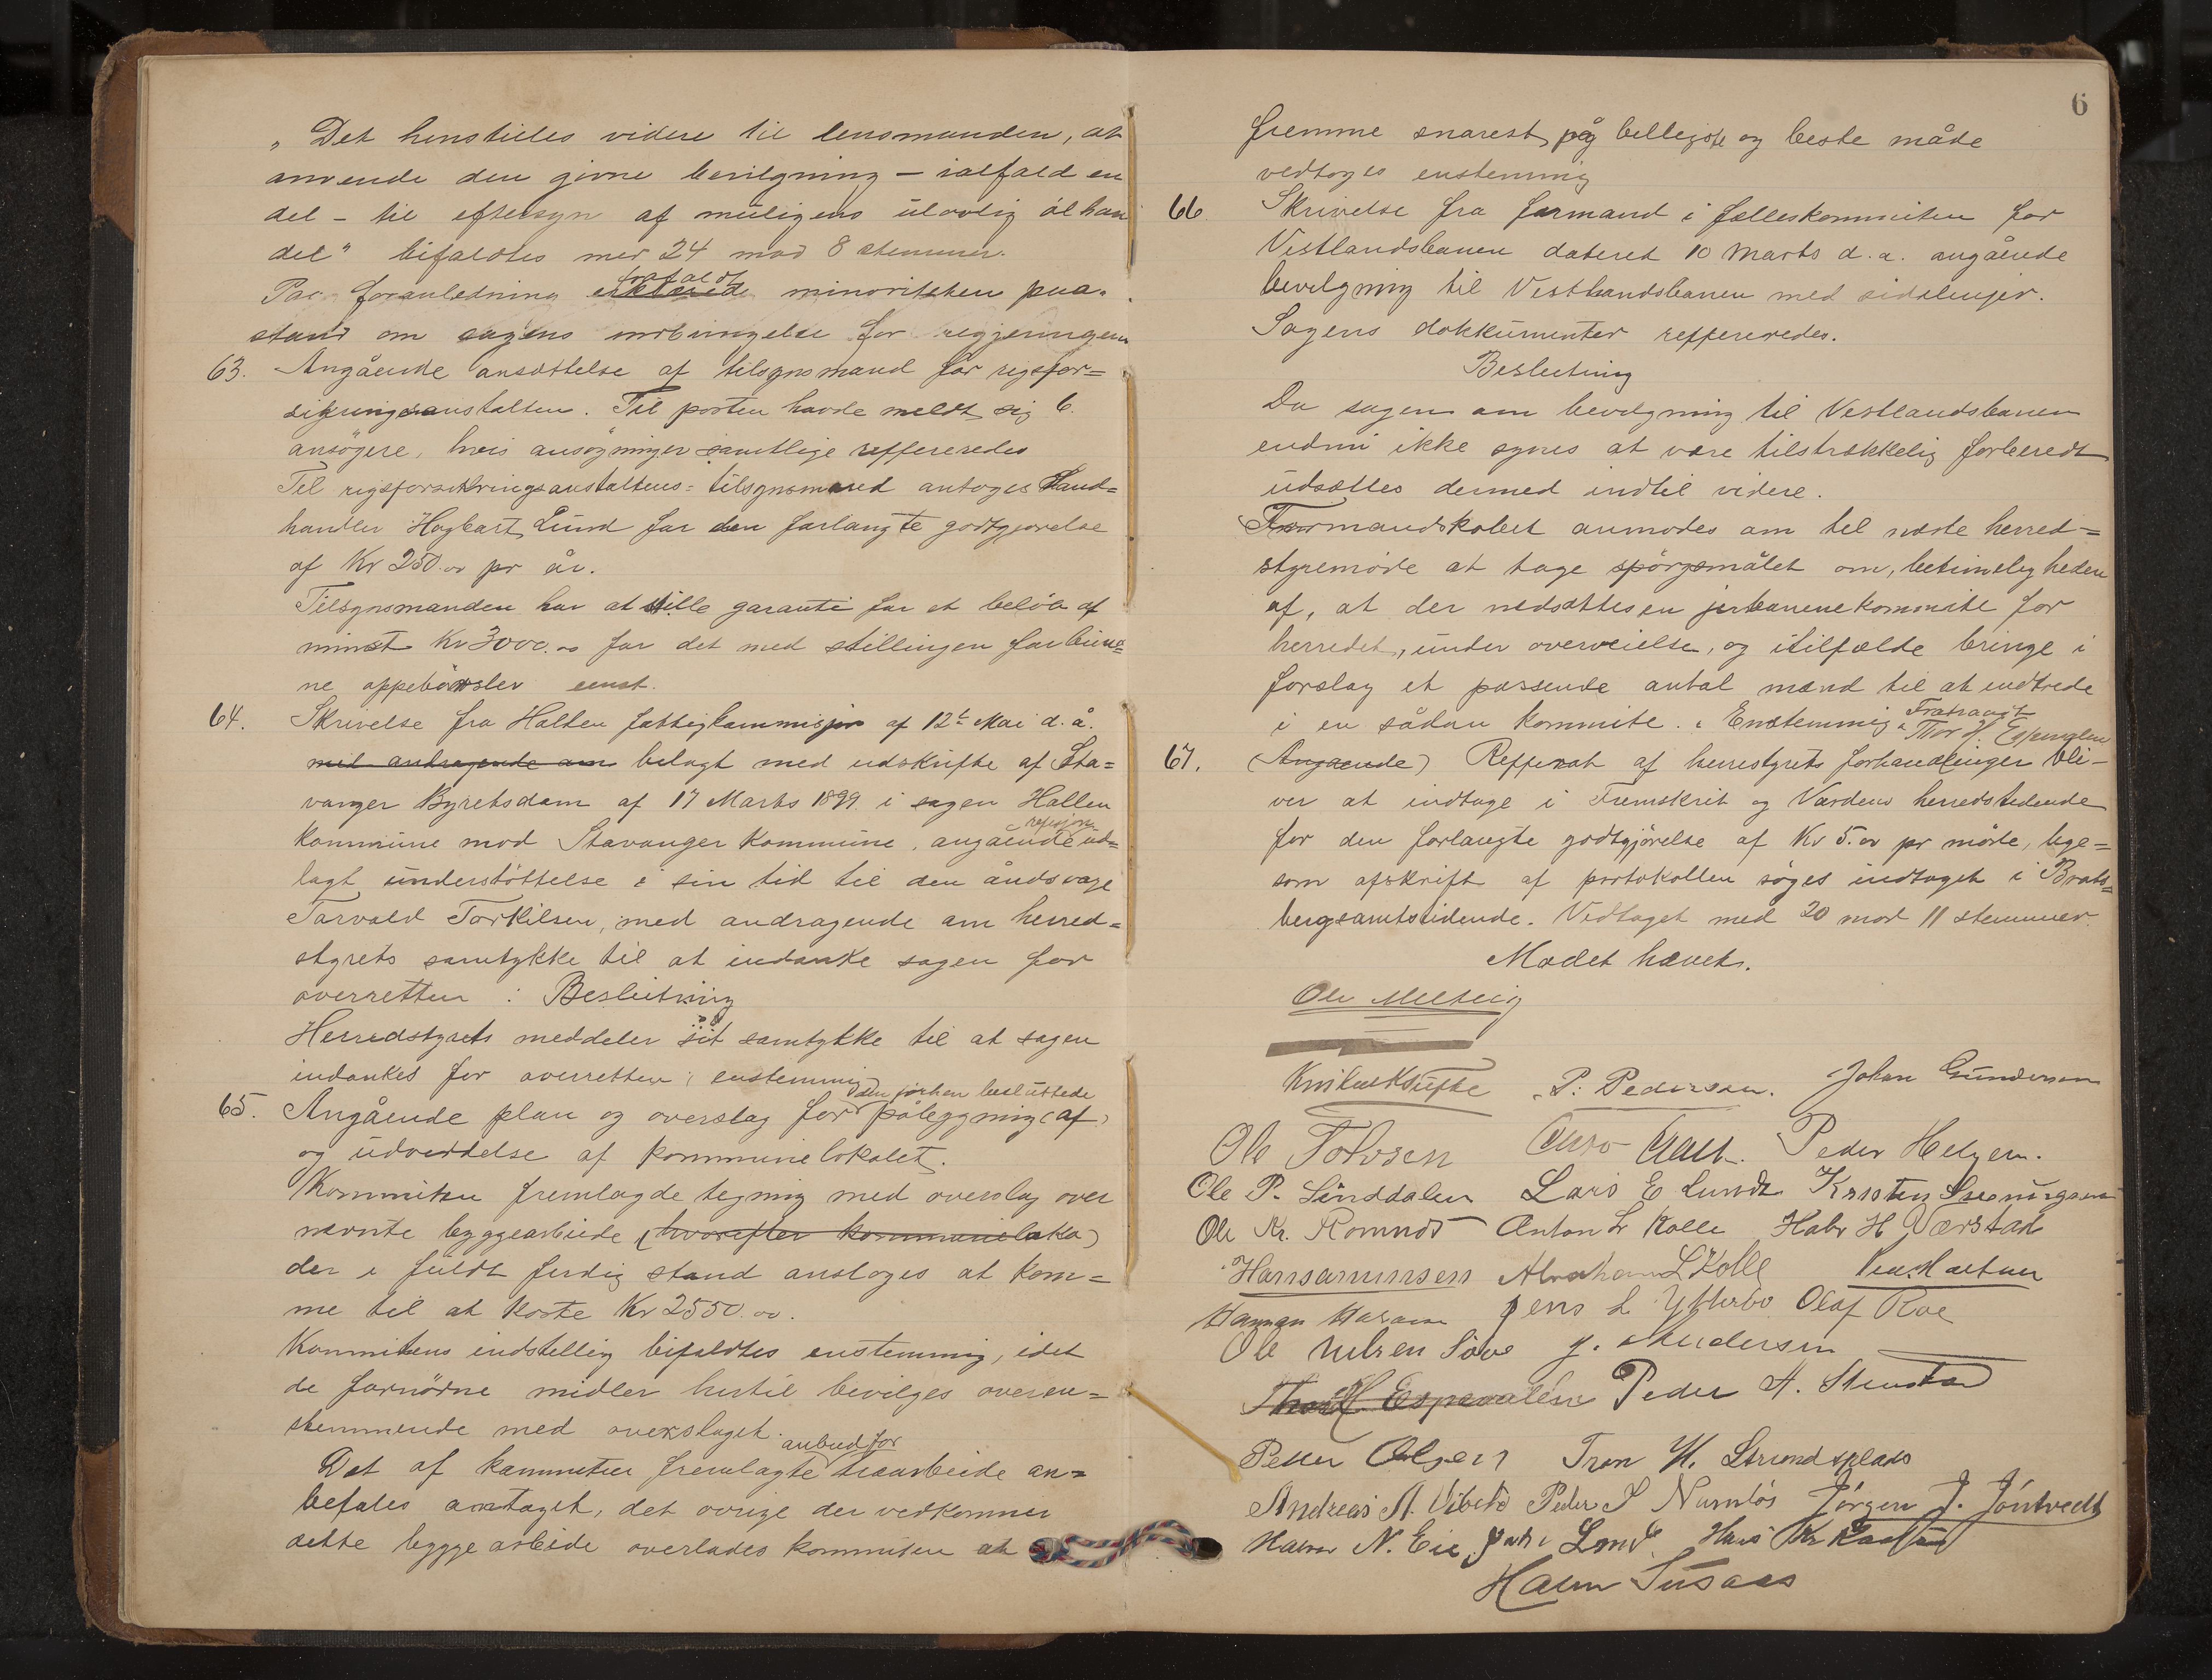 „Det henstilles videre til lensmanden, at
anvende den givne bevilgning – ialfald en
del – til eftersyn af muligens ulovlig ølhan
del“ bifaldtes med 24 mod 8 stemmer.
Paa foranledning frafaldt minoriteten paa-
stand om sagens indbringelse for regjeringen
63. Angående ansættelse af tilsynsmand for rigsfor=
sikringsanstalten. Til posten havde meldt sig 6
ansøgere, hvis ansøgninger samtlige reffereredes
Til rigsforsikringsanstaltens= tilsynsmand antoges Land=
handler Hagbart Lund for den forlangte godtgjørelse
af Kr 250.00 pr år.
Tilsynsmanden har at stille garanti for et beløb af
minst Kr 3000.00 for det med stillingen forbund=
ne oppebørsler enst.
64. Skrivelse fra Holten fattigkommisjon af 12te Mai d. å.
med andragende om belagt med udskrifte af Sta=
vanger Byretsdom af 17 Marts 1899 i sagen Hollen
kommune mod Stavanger kommune, angående refusjon ud=
lagt understøttelse i sin tid til den åndsvage
Torvald Torkilsen, med andragende om herred=
styrets samtykke til at indanke sagen for
overretten : Beslutning
Herredstyrets meddeler sit samtykke til at sagen
indankes for overretten; enstemmig
65. Angående plan og overslag for den forhen besluttede påbygning (af)
og udvidelse af kommunelokalet.
Kommiten fremlagde tegning med overslag over
nævnte byggearbeide (hvorefter kommuneloka)
der i fuldt færdig stand ansloges at kom=
me til at koste Kr 2550.00.
Kommitens indstelling bifaldtes enstemmig, idet
de fornødne midler hertil bevilges overen=
stemmende med overslaget.
Det af kommiteen fremlagte anbud for træarbeide an=
befales antaget, det øvrige der vedkommer
dette byggearbeide overlades kommiteen at
6
fremme snarest på billigste og beste måde
vedtoges enstemmig
66. Skrivelse fra formand i fælleskommiten for
Vestlandsbanen dateret 10 Marts d. a. angående
bevilgning til Vestlandsbanen med sidelinjer.
Sagens dokkumenter reffereredes.
Beslutning
Da sagen om bevilgning til Vestlandsbanen
endnu ikke synes at være tilstrækkelig forberedt
udsættes dermed indtil videre.
Formandskabet anmodes om til næste herred=
styremøde at tage spørgsmålet om, betimeligheden
af, at der nedsættes en jerbanenekommite for
herredet, under overveielse, og itilfælde bringe i
forslag et passende antal mænd til at indtræde
i en sådan kommite. Enstemmig. Fratraadt Thor H. Espendalen
67. (Angaaende) Refferat af herrestyrets forhandlinger bli–
ver at indtage i Fremskrit og Vardens herredstidende
for den forlangte godtgjørelse af Kr 5.00 pr møte, lige=
som afskrift af protokollen søges indtaget i Brats=
bergsamtstidende. Vedtaget med 20 mod 11 stemmer.
Mødet hævet.
Ole
P. Pedersen. Johan Gundersen
Ole Tolvsen Peder Helgen.
Ole P. Sunddalen Lars E Lundt Kristen
Ole Kr. Romnes Anton L Kolle Halv H Værstad
Hans Abraham L Kolle
Jens L Ytterbø Olaf Roe
Ole Nilsen Sove J. Andersen
Thor H Espendalen Peder A. Stenstad
Peder Olsen Tron H. Strandsplads
Andreas A. Vibeto Peder S Numløs Jørgen J. Jøntvedt
Halvor N. Eie Lund Hans Kr
Halvor